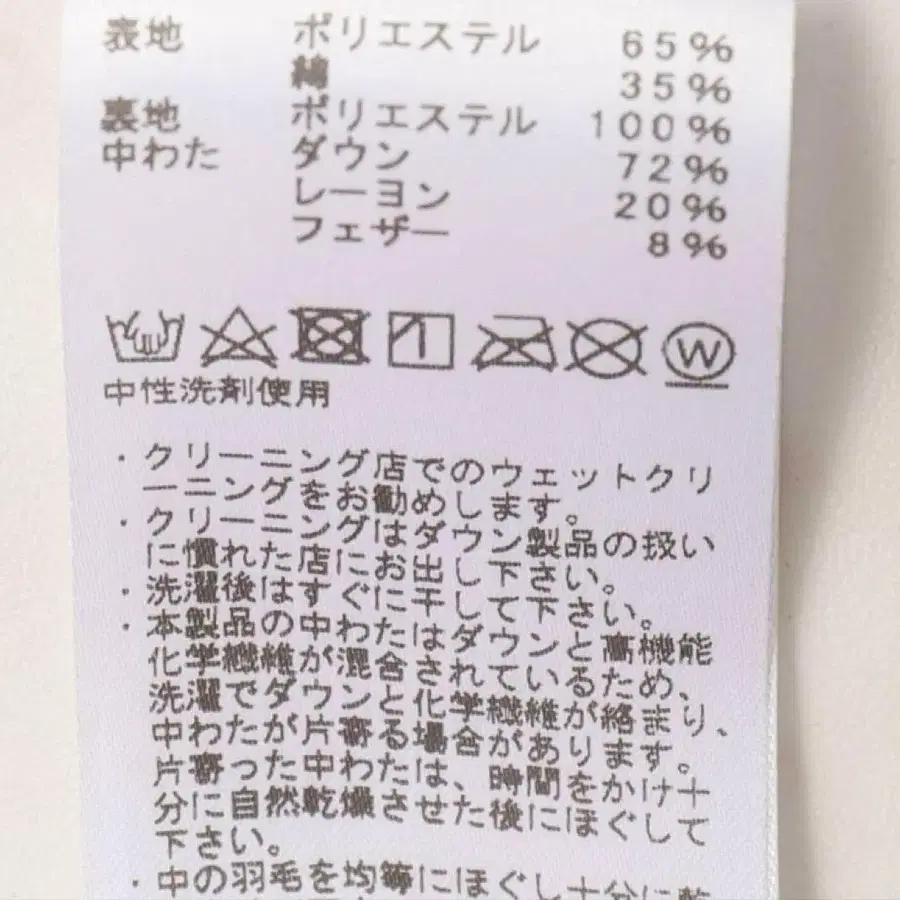 表地 ポリエステル 65%
綿 35%
裏地 ポリエステル 100%
中わた ダウン 72%
レーヨン 20%
フェザー 8%
W
中性洗剤使用
・クリーニング店でのウェットクリ
ーニングをお勧めします。
・クリーニングはダウン製品の扱い
に慣れた店にお出し下さい。
・洗濯後はすぐに干して下さい。
・本製品の中わたはダウンと高機能
化学繊維が混合されているため、
洗濯でダウンと化学繊維が絡まり、
中わたが片寄る場合があります。
片寄った中わたは、時間をかけ十
分に自然乾燥させた後にほぐして
下さい。
・中の羽毛を均等にほぐし十分に乾